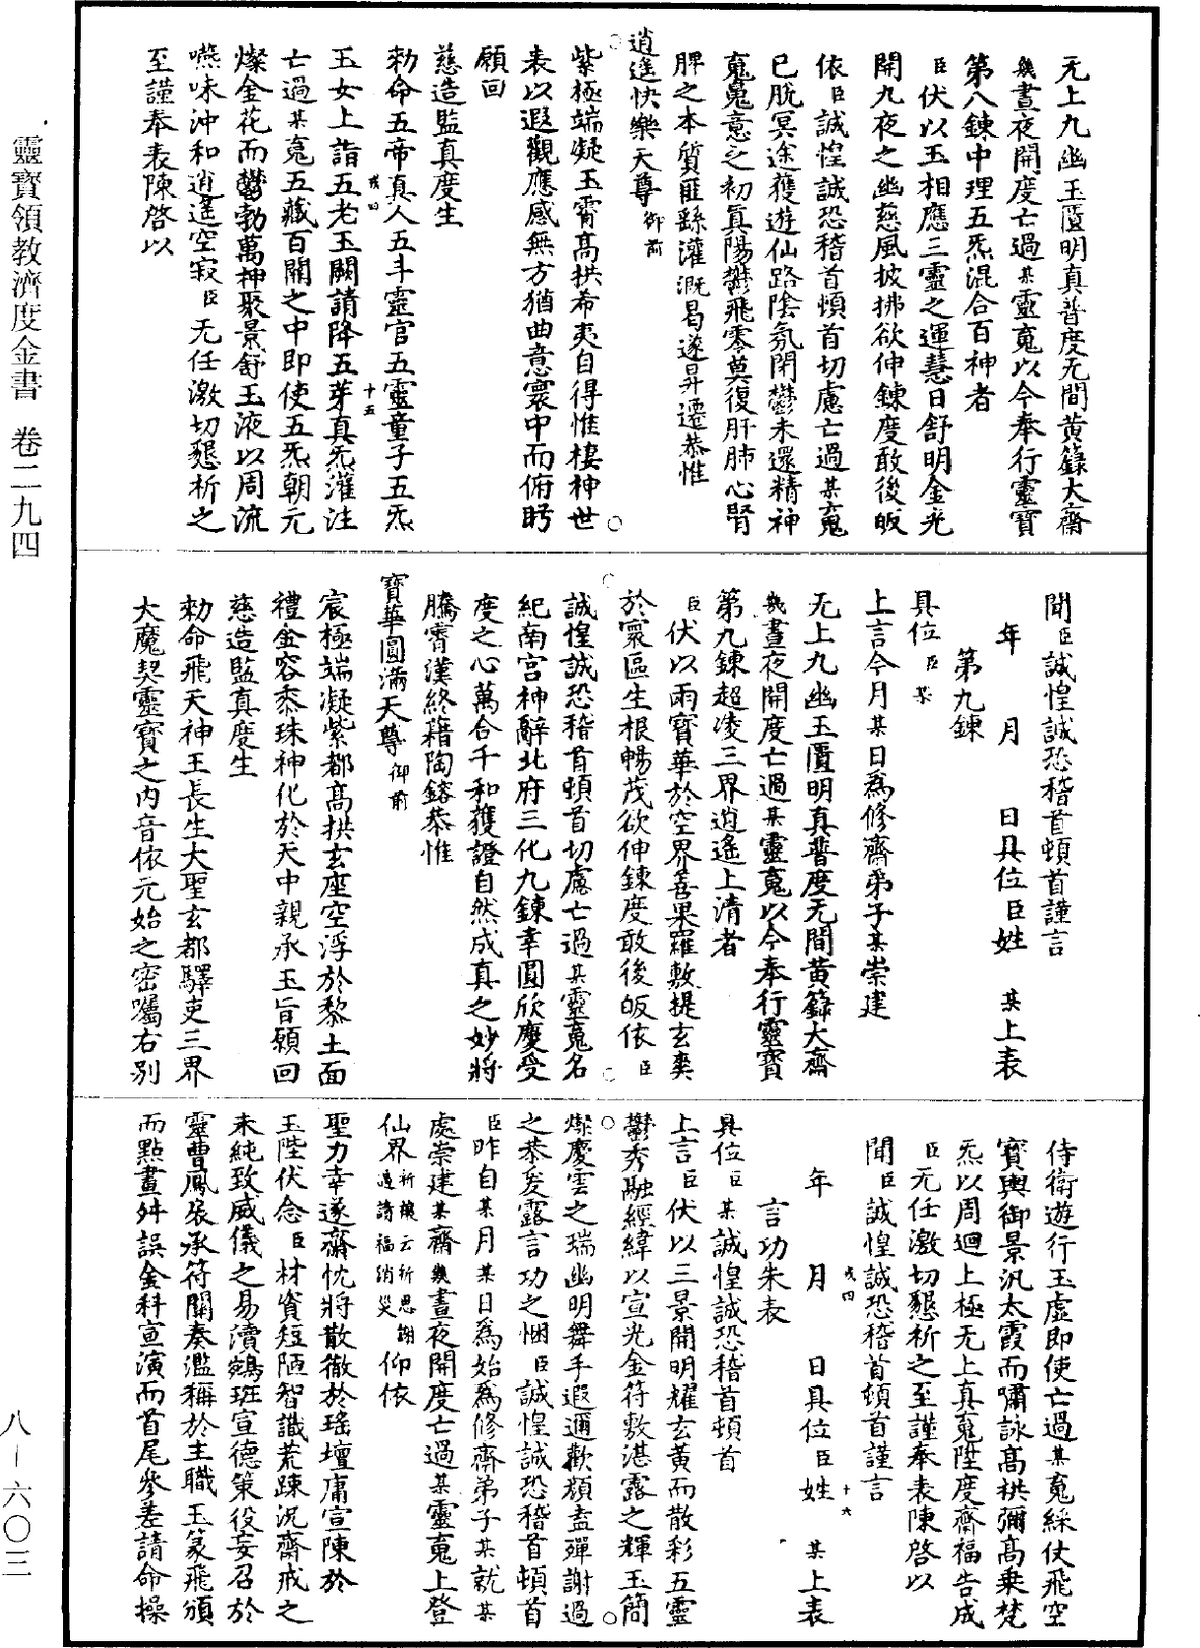 靈寶領教濟度金書　卷二九四
无上九幽玉匱明真普度无間黃籙大齋
幾晝夜開度亡過某靈䰟以今奉行靈寶
第八鍊中理五炁混合百神者
臣伏以玉相應三靈之運慧日舒明金光
開九夜之幽慈風披拂欲伸鍊度敢後皈
依臣誠惶誠恐稽首頓首切慮亡過某䰟
已脫冥途獲遊仙路陰氛閉鬱未還精神
䰟魄意之初真陽鬱飛零奠復肝肺心腎
脾之本質匪繇灌溉曷遂昇遷恭惟
逍遙快樂天尊御前
紫極端凝玉霄高拱希夷自得惟棲神世
表以遐觀應感無方猶曲意寰中而俯眄
願回
慈造監真度生
勑命五帝真人五斗靈官五靈童子五炁
玉女上詣五老玉闕請降五芽真炁灌注
亡過某䰟五藏百關之中即使五炁朝元
燦金花而鬱勃萬神聚景舒玉液以周流
嚥味沖和逍遙空寂臣无任激切懇祈之
至謹奉表陳啓以
聞臣誠惶誠恐稽首頓首謹言
年　月　日具位臣姓　某上表
第九鍊
具位臣某
上言今月某日為修齋弟子某崇建
无上九幽玉匱明真普度无間黃籙大齋
幾晝夜開度亡過某靈䰟以今奉行靈寶
第九鍊超凌三界逍遙上清者
臣伏以雨寶華於空界善果羅敷提玄奧
於寰區生根暢茂欲伸鍊度敢後皈依臣
誠惶誠恐稽首頓首切慮亡過某靈䰟名
紀南宮神辭北府三化九鍊幸圓欣慶受
度之心萬合千和獲證自然成真之妙將
騰霄漢終藉陶鎔恭惟
寶華圓滿天尊御前
宸極端凝紫都高拱玄座空浮於黎土面
禮金容黍珠神化於天中親承玉旨願回
慈造監真度生
勑命飛天神王長生大聖玄都驛吏三界
大魔契靈寶之內音依元始之密囑右別
侍衛遊行玉虛即使亡過某䰟綵仗飛空
寶輿御景汎太霞而嘯詠高拱彌高乘梵
炁以周迴上極无上真䰟陞度齋福告成
臣无任激切懇祈之至謹奉表陳啓以
聞臣誠惶誠恐稽首頓首謹言
年　月　日具位臣姓　某上表
言功朱表
具位臣某誠惶誠恐稽首頓首
上言臣伏以三景開明耀玄黃而散彩五靈
鬱秀融經緯以宣光金符敷湛露之輝玉簡
燦慶雲之瑞幽明舞手遐邇歡顏盍殫謝過
之恭爰露言功之悃臣誠惶誠恐稽首頓首
臣昨自某月某日為始為修齋弟子某就某
處崇建某齋幾晝夜開度亡過某靈䰟上登
仙界祈禳云祈恩謝過請福消災仰依
聖力幸遂齋忱將散徹於瑤壇庸宣陳於
玉陛伏念臣材資短陋智識荒踈況齋戒之
未純致威儀之易瀆鵷班宣德策役妄召於
靈曹鳳扆承符關奏濫稱於主職玉篆飛頒
而點畫舛誤金科宣演而首尾參差請命操
戌四　十五
戌四　十六
八—六〇三